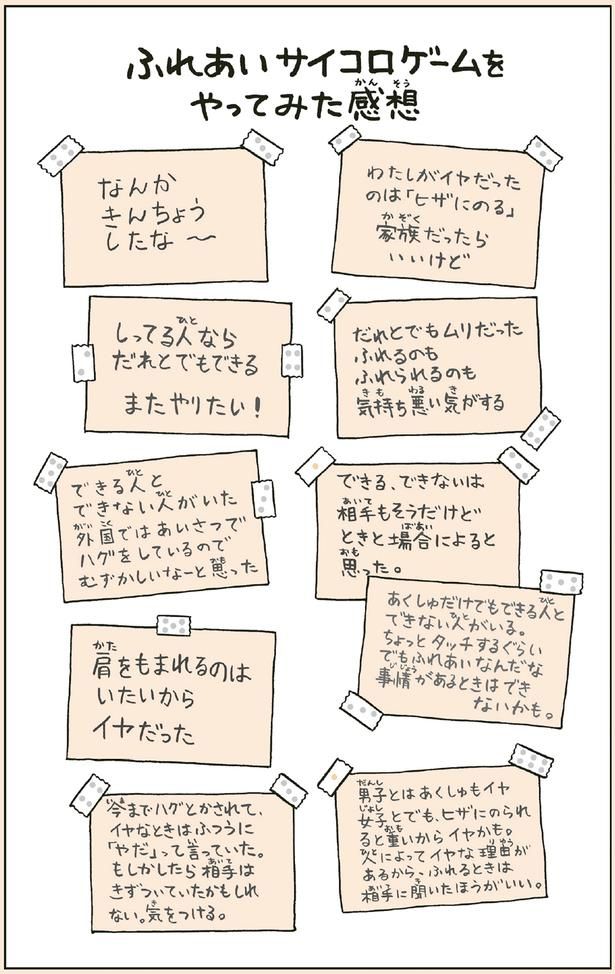 ふれあいサイコロゲームを
やってみた感想
なんか
きんちょう
したな〜
わたしがイヤだった
のは「ヒザにのる」
家族だったら
いいけど
しってる人なら
だれとでもできる
またやりたい!
だれとでもムリだった
ふれるのも
ふれられるのも
気持ち悪い気がする
できる人と
できない人がいた
外国ではあいさつで
ハグをしているので
むずかしいなーと思った
できる、できないは
相手もそうだけど
ときと場合によると
思った。
あくしゅだけでもできる人と
できない人がいる。
ちょっとタッチするぐらい
でもふれあいなんだな
事情があるときはでき
ないかも。
肩をもまれるのは
いたいから
イヤだった
今までハグとかされて、
イヤなときはふつうに
「やだ」って言っていた。
もしかしたら相手は
きずついていたかもしれ
ない。気をつける。
男子とはあくしゅもイヤ
女子とでも、ヒザにのられ
ると重いからイヤかも。
人によってイヤな理由が
あるから、ふれるときは
相手に聞いたほうがいい。